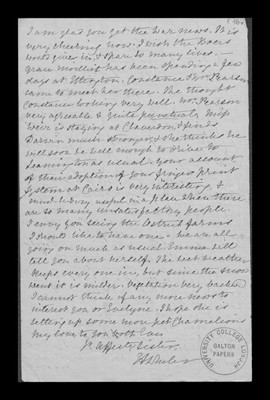 I am glad you get the war news. It is
very cheering now. I wish the Boers
would give in, & spare so many lives. —
Grace Moilliet has been spending a few
days at Ettington. Constance & Mr. Pearson
came to meet her there. She thought
Constance looking very well. Mr. Pearson
very agreeable & quite Miss
Weir is staying at Claverdon, & finds
Darwin much stronger, & she thinks he
will soon be well enough to drive to
Leamington as usual. Your account
of their adoption of your finger print
System at Cairo is very interesting &
must be very useful in a place where there
are so many unsatisfactory people.
I envy you seeing the Ostrich farms
I should like to have one. We are all
going on much as usual. Emma will
tell you about herself. The bad weather
keeps every one in, but since the snow
went it is milder. Vegetation very backward
I cannot think of any more news to
interest you or Evelyne. I hope she is
setting up some more pet Chameleons
my love to you both
Yr affecte Sister,
UNIVERSITY COLLEGE LONDON
GALTON
PAPERS